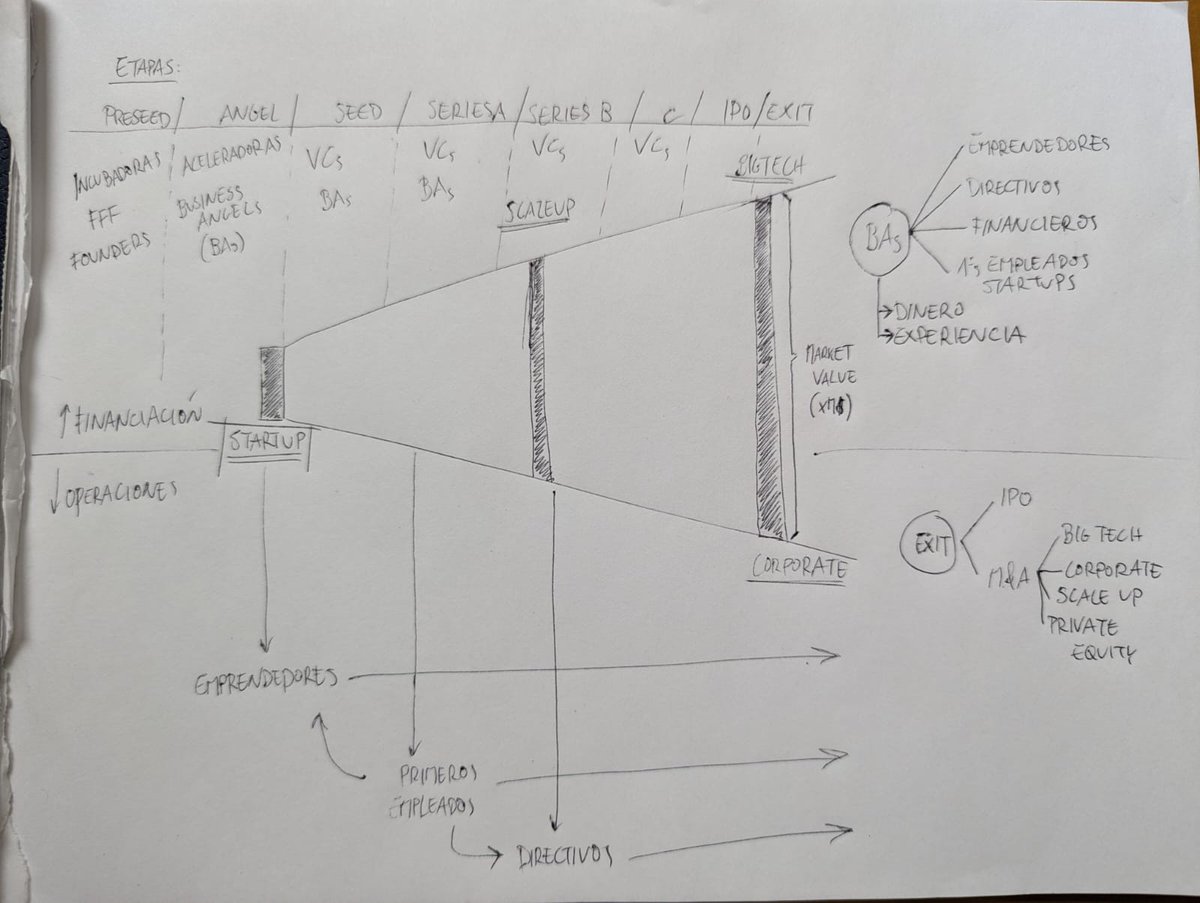 ETAPAS:
PRESEED / ANGEL / SEED / SERIES A / SERIES B / C / IPO / EXIT
INCUBADORAS
FFF
FOUNDERS
ACELERADORAS
BUSINESS
ANGELS
(BAs)
VCs
BAs
VCs
BAs
VCs
VCs
SCALEUP
BIGTECH
MARKET
VALUE
(xM$)
↑ FINANCIACIÓN
↓ OPERACIONES
STARTUP
CORPORATE
EMPRENDEDORES
PRIMEROS
EMPLEADOS
DIRECTIVOS
BAs
EMPRENDEDORES
DIRECTIVOS
FINANCIEROS
1's EMPLEADOS
STARTUPS
→ DINERO
→ EXPERIENCIA
EXIT
IPO
M&A
BIG TECH
CORPORATE
SCALE UP
PRIVATE
EQUITY